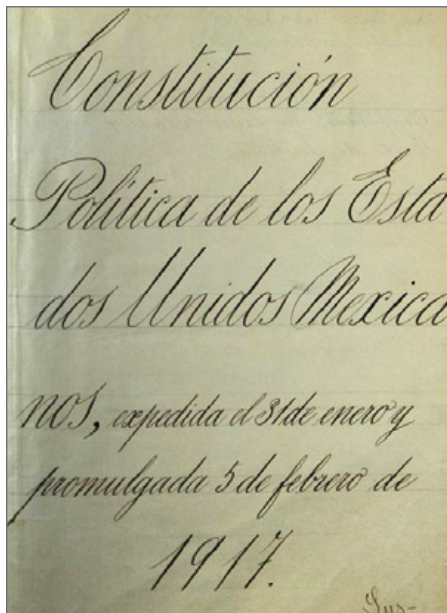 Constitución
Política de los Esta
dos Unidos Mexica
nos, expedida el 31 de enero y
promulgada 5 de febrero de
1917.
Sus-